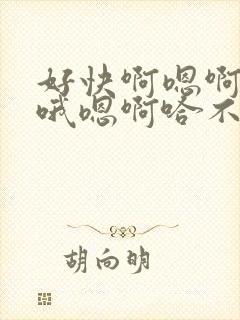 好快啊嗯啊
哦嗯啊嗒不
胡向明